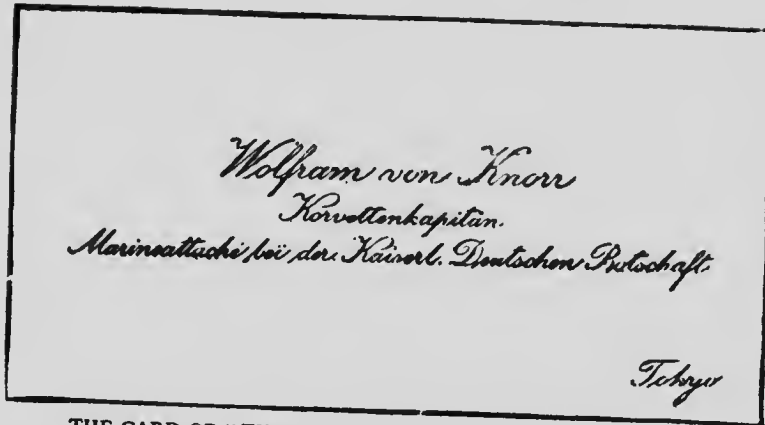 Wolfram von Knorr
Korvettenkapitän.
Marineattaché bei der Kaiserl. Deutschen Botschaft
Tokyo
THE CARD OF